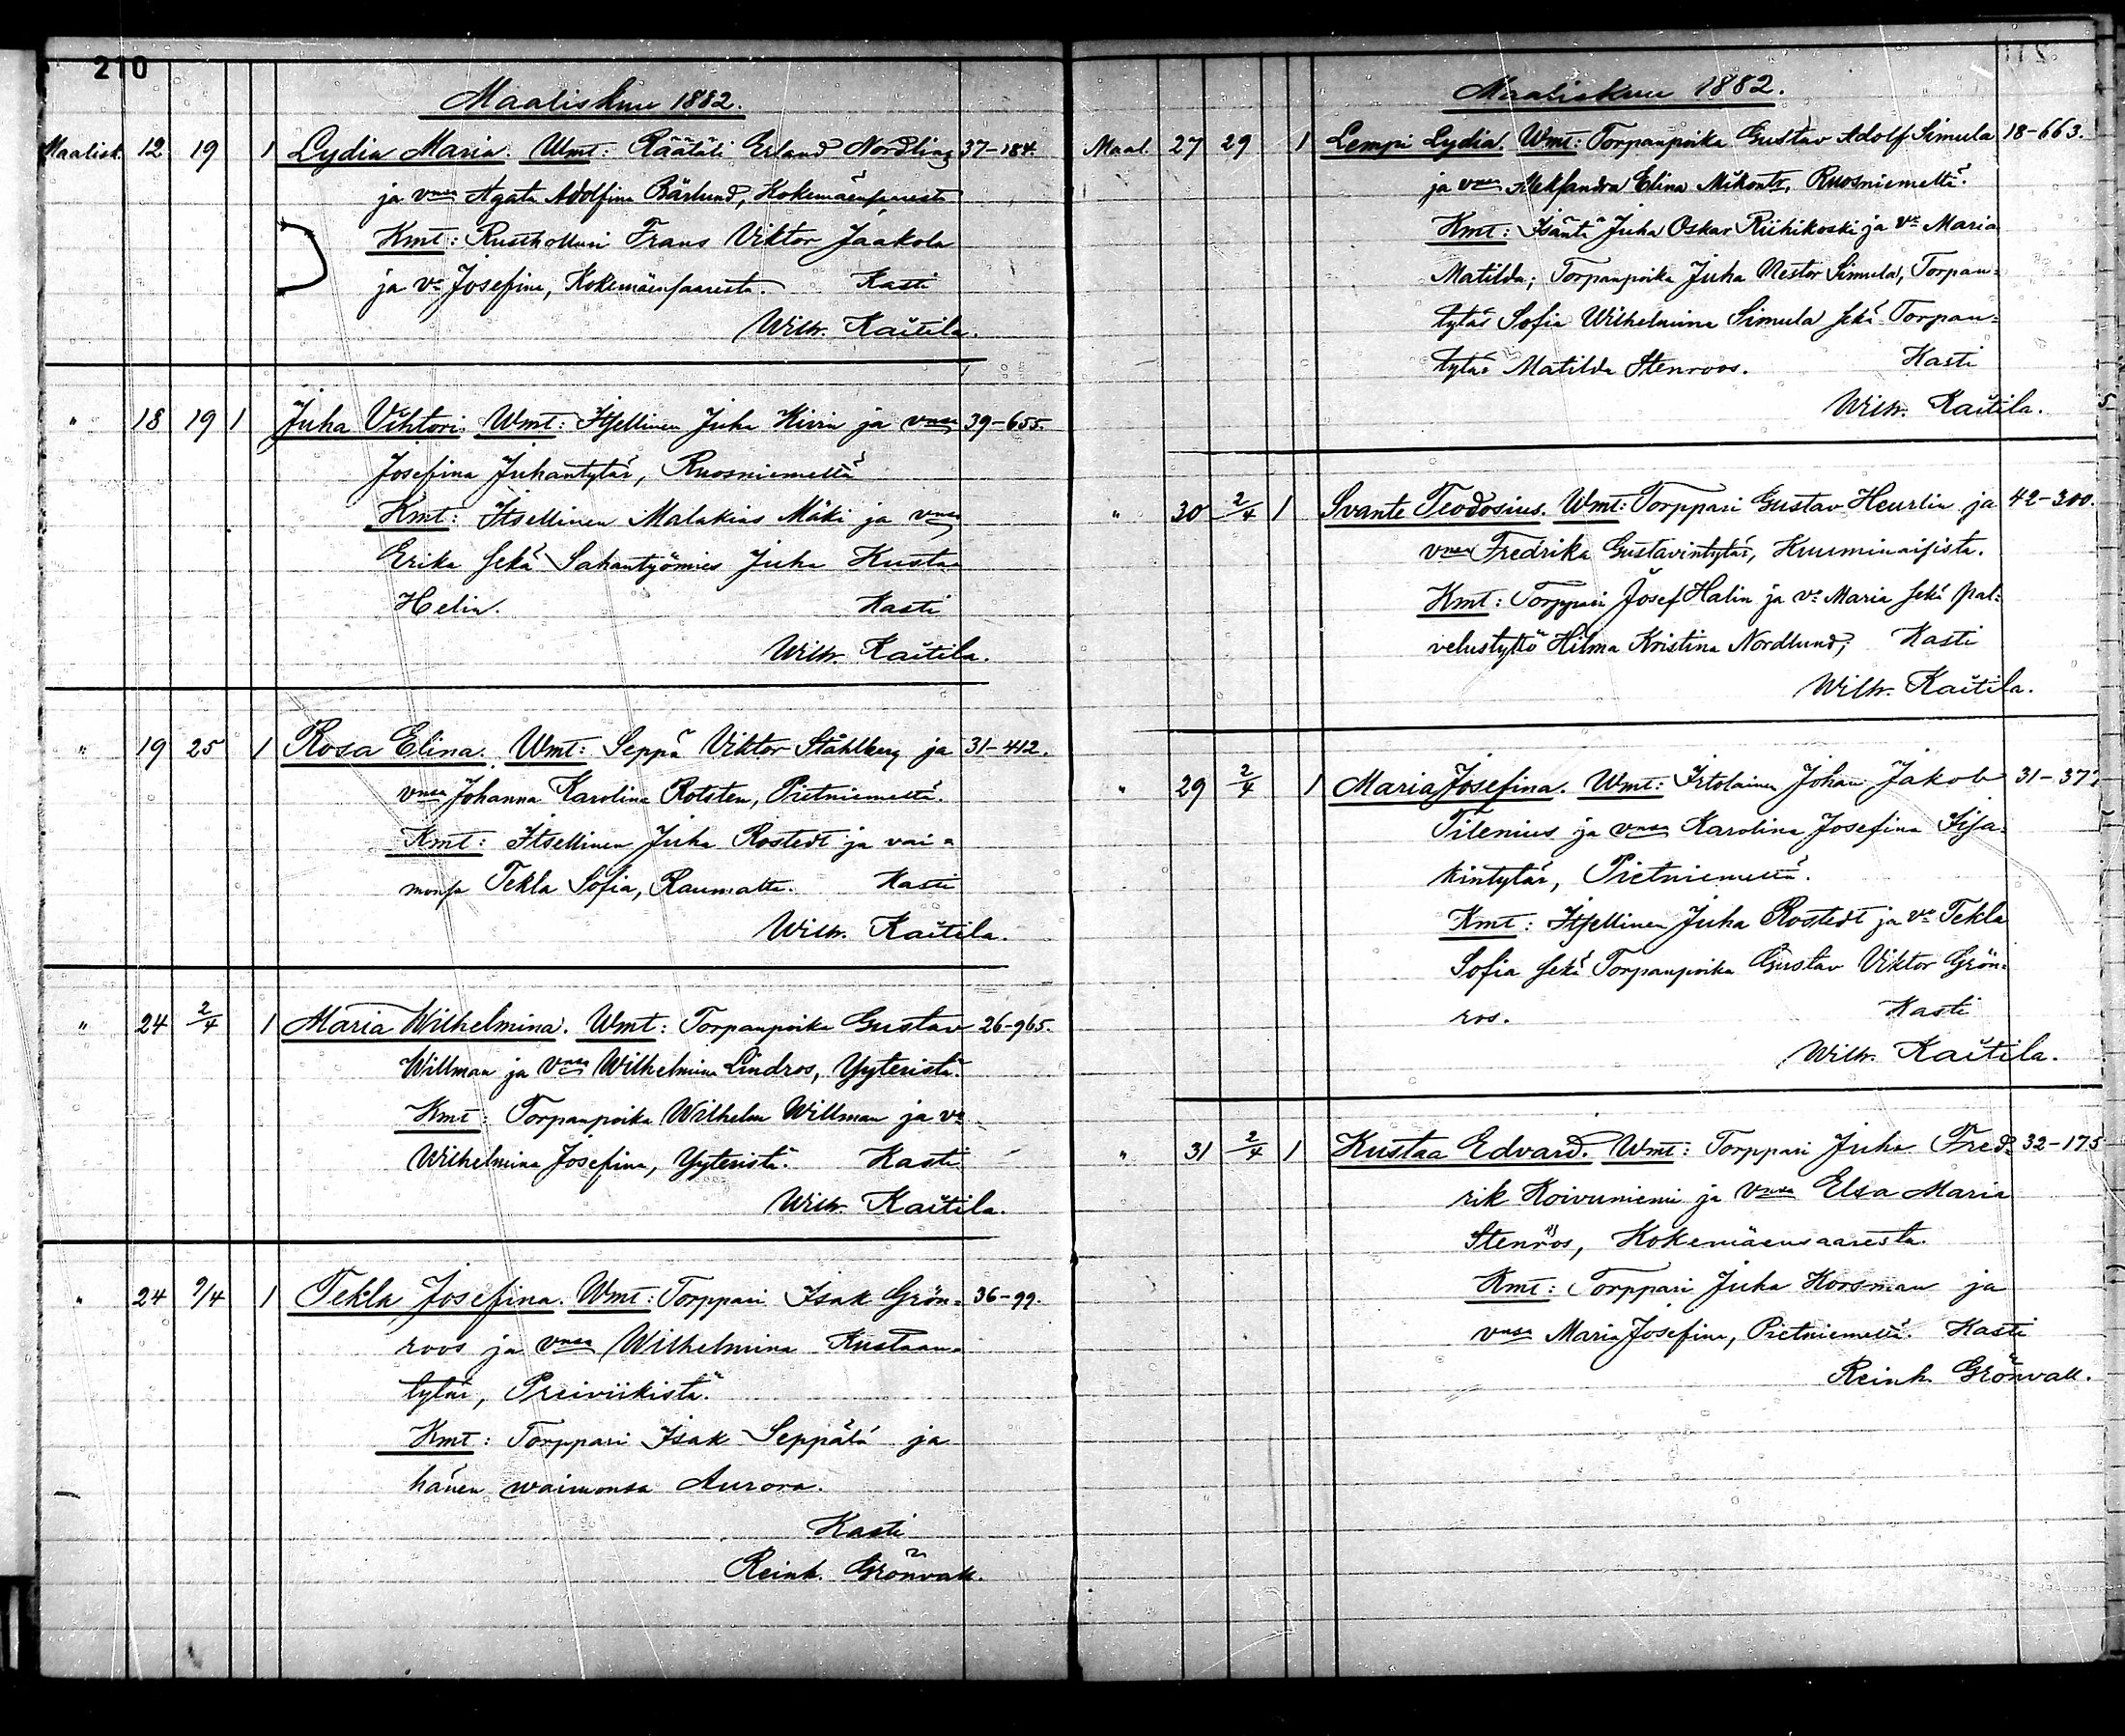 210
Maaliskuu 1882.
Maalisk. 12 19 1 Lydia Maria. Wmt: Räätäli Erland Nordling 37-184.
ja vnsa Agata Adolfina Bärlund, Kokemäensaaresta
Kmt: Rusthollari Frans Viktor Jaakola
ja vo Josefina, Kokemäensaaresta. Kasti
Wilh. Kaitila.
" 18 19 1 Juha Vihtori. Wmt: Itsellinen Juha Kivin ja vnsa 39-655.
Josefina Juhantytär, Ruosniemeltä
Kmt: Itsellinen Malakias Mäki ja vnsa
Erika sekä Sahantyömies Juha Kustaa
Helin. Kasti
Wilh. Kaitila.
" 19 25 1 Rosa Elina. Wmt: Seppä Viktor Ståhlberg ja 31-412.
vnsa Johanna Karolina Rotsten, Pietniemeltä.
Kmt: Itsellinen Juha Rostedt ja vai=
monsa Tekla Sofia, Raumalta. Kasti
Wilh. Kaitila.
" 24 2/4 1 Maria Wilhelmina. Wmt: Torpanpoika Gustav 26-965.
Willman ja vnsa Wilhelmina Lindros, Yyteristä.
Kmt: Torpanpoika Wilhelm Willman ja vo
Wilhelmina Josefina, Yyteristä. Kasti
Wilh. Kaitila.
" 24 9/4 1 Tekla Josefina. Wmt: Torppari Isak Grön= 36-99.
roos ja vnsa Wilhelmina Kustaan=
tytär, Preiviikistä.
Kmt: Torppari Isak Seppälä ja
hänen waimonsa Aurora.
Kasti
Reinh. Grönvall.
Maaliskuu 1882.
Maal. 27 29 1 Lempi Lydia. Wmt: Torpanpoika Gustav Adolf Simula 18-663.
ja vnsa Aleksandra Elina Mikontr, Ruosniemeltä.
Kmt: Isäntä Juha Oskar Riihikoski ja vo Maria
Matilda; Torpanpoika Juha Nestor Simula, Torpan=
tytär Sofia Wilhelmina Simula sekä Torpan=
tytär Matilda Stenroos. Kasti
Wilh. Kaitila.
" 30 2/4 1 Svante Teodosius. Wmt: Torppari Gustav Heurlin ja 42-300.
vnsa Fredrika Gustavintytär, Kruuminaisista.
Kmt: Torppari Josef Halin ja vo Maria sekä pal=
velustyttö Hilma Kristina Nordlund; Kasti
Wilh. Kaitila.
" 29 2/4 1 Maria Josefina. Wmt: Irtolainen Johan Jakob 31-377
Tilenius ja vnsa Karolina Josefina Iisa=
kintytär, Pietniemeltä.
Kmt: Itsellinen Juha Rostedt ja vo Tekla
Sofia sekä Torpanpoika Gustav Viktor Grön=
ros. Kasti
Wilh. Kaitila.
" 31 2/4 1 Kustaa Edvard. Wmt: Torppari Juha Fred= 32-175
rik Koivuniemi ja vnsa Elsa Maria
Stenroos, Kokemäensaaresta.
Kmt: Torppari Juha Korsman ja
vnsa Maria Josefina, Pietniemeltä. Kasti
Reinh. Grönvall.